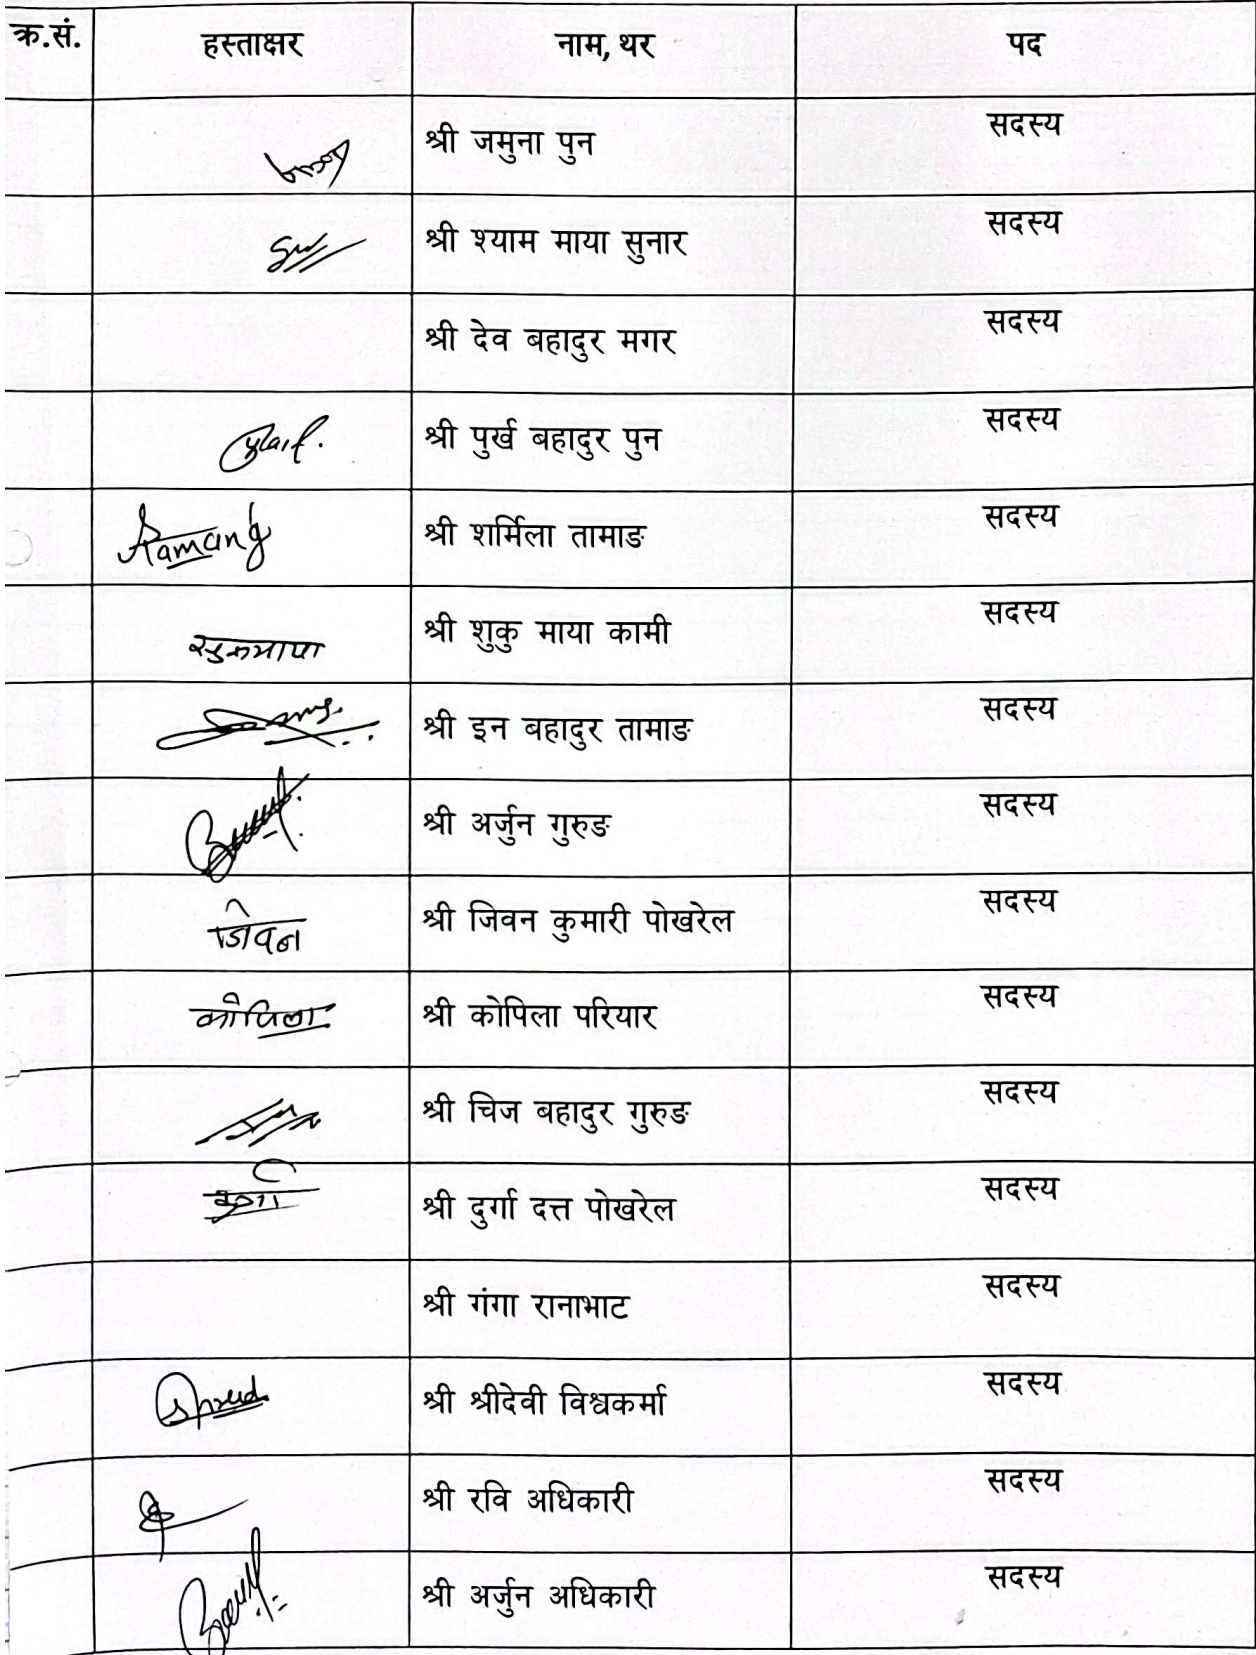 क्र.सं. हस्ताक्षर नाम, थर पद
श्री जमुना पुन सदस्य
श्री श्याम माया सुनार सदस्य
श्री देव बहादुर मगर सदस्य
श्री पुर्ख बहादुर पुन सदस्य
श्री शर्मिला तामाङ सदस्य
श्री शुकु माया कामी सदस्य
श्री इन बहादुर तामाङ सदस्य
श्री अर्जुन गुरुङ सदस्य
जिवन श्री जिवन कुमारी पोखरेल सदस्य
कोपिला श्री कोपिला परियार सदस्य
श्री चिज बहादुर गुरुङ सदस्य
श्री दुर्गा दत्त पोखरेल सदस्य
श्री गंगा रानाभाट सदस्य
श्री श्रीदेवी विश्वकर्मा सदस्य
श्री रवि अधिकारी सदस्य
श्री अर्जुन अधिकारी सदस्य